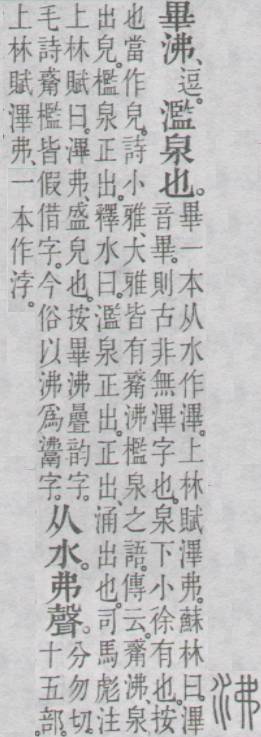 沸
畢沸、逗。濫泉也。
畢一本从水作滭。上林賦滭弗。蘇林曰。滭
音畢。則古非無滭字也。泉下小徐有也。按
也當作皃。詩小雅、大雅皆有觱沸檻泉之語。傳云。觱沸、泉
出皃。檻泉正出。釋水曰。濫泉正出。正出、涌出也。司馬彪注
上林賦曰。滭弗、盛皃也。按畢沸曡韵字。
毛詩觱檻皆假借字。今俗以沸爲字。
从水。弗聲。
分勿切。
十五部。
上林賦滭弗、一本作浡。